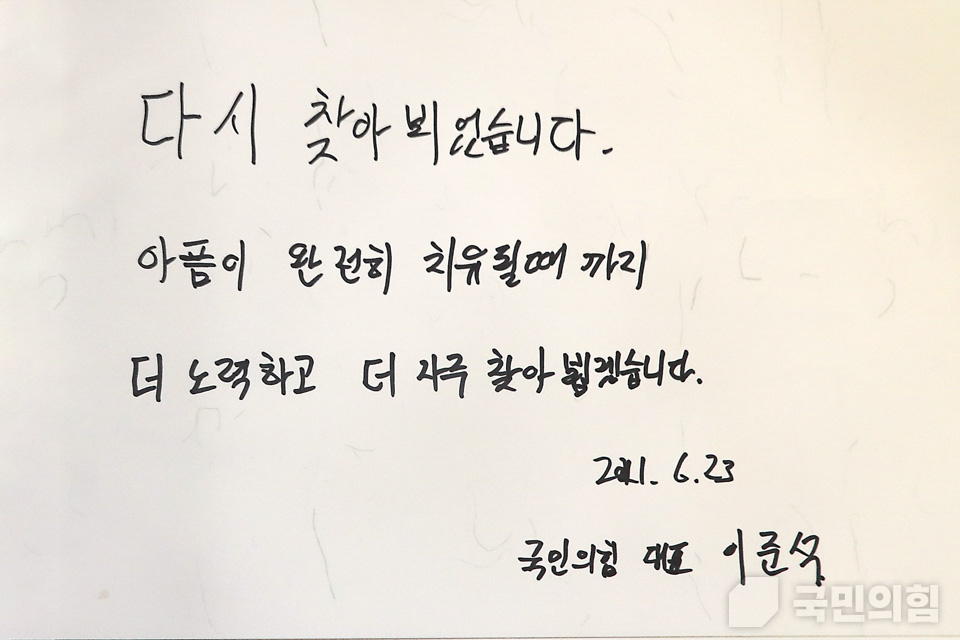 다시 찾아 뵈었습니다.
아픔이 완전히 치유될때 까지
더 노력하고 더 자주 찾아 뵙겠습니다.
2021. 6. 23
국민의힘 대표 이준석
국민의힘